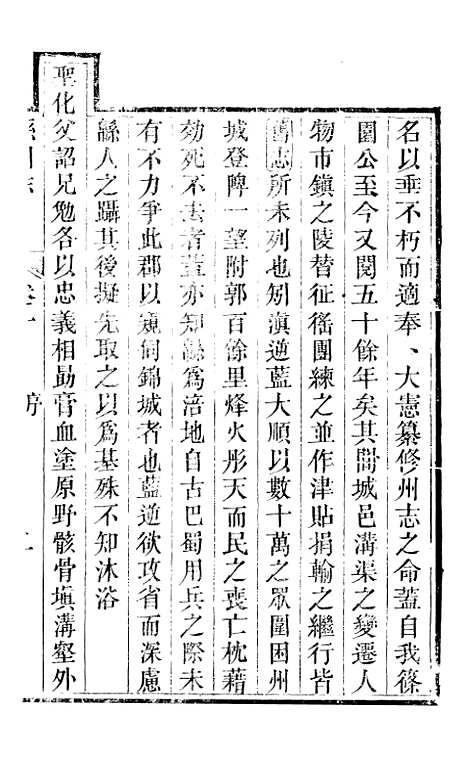 名以垂不朽而適奉、大憲纂修州志之命蓋自我篠
園公至今又閱五十餘年矣其間城邑溝渠之變遷人
物市鎮之陵替征徭團練之並作津貼捐輸之繼行皆
舊志所未列也矧滇逆藍大順以數十萬之眾圍困州
城登陴一望附郭百餘里烽火彤天而民之喪亡枕藉
効死不去者蓋亦知緜為涪地自古巴蜀用兵之際未
有不力爭此郡以窺伺錦城者也藍逆欲攻省而深慮
緜人之躡其後擬先取之以爲基殊不知沐浴
聖化父詔兄勉各以忠義相勖膏血塗原野骸骨塡溝壑外
卷十
序
二